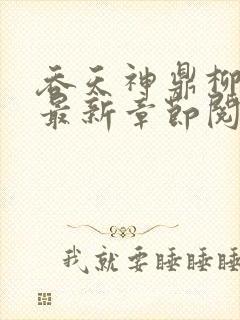 吞天神鼎柳
最新章节阅
我就要睡睡睡